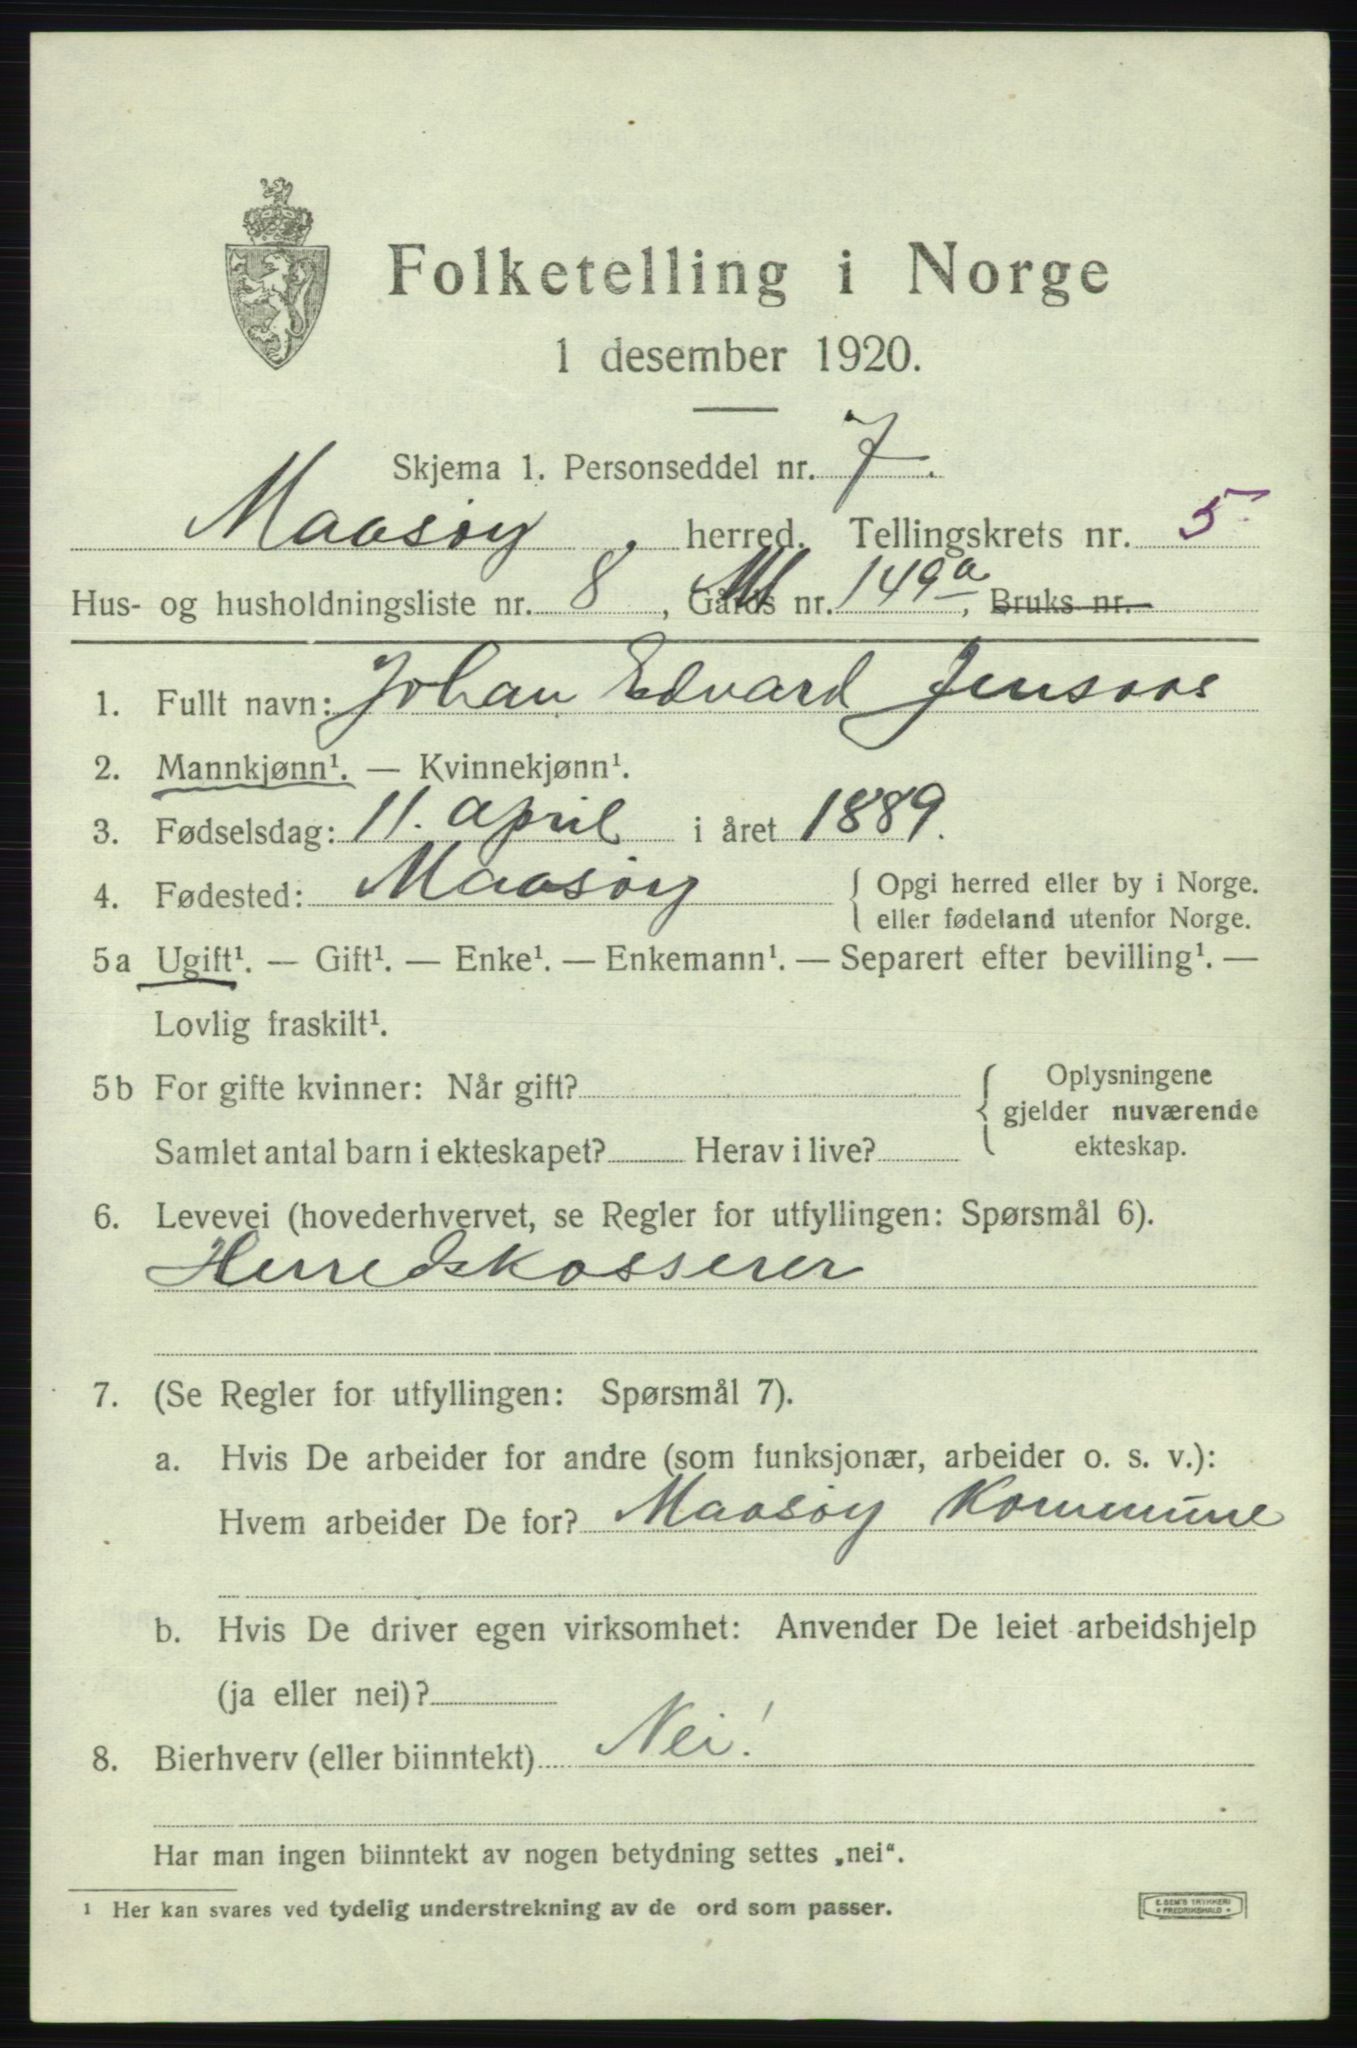 Folketelling i Norge
1 desember 1920.
Skjema 1. Personseddel nr. 7.
Maasøy herred. Tellingskrets nr. 5
Hus- og husholdningsliste nr. 8, Gårds nr. 149a, Bruks nr.
1. Fullt navn: Johan Edvard
2. Mannkjønn¹. — Kvinnekjønn¹.
3. Fødselsdag: 11. april i året 1889.
4. Fødested: Maasøy { Opgi herred eller by i Norge.
eller fødeland utenfor Norge.
5a Ugift¹. — Gift¹. — Enke¹. — Enkemann¹. — Separert efter bevilling¹. —
Lovlig fraskilt¹.
5b For gifte kvinner: Når gift? { Oplysningene
gjelder nuværende
Samlet antal barn i ekteskapet? Herav i live? ekteskap.
6. Levevei (hovederhvervet, se Regler for utfyllingen: Spørsmål 6).
Herredskasserer
7. (Se Regler for utfyllingen: Spørsmål 7).
a. Hvis De arbeider for andre (som funksjonær, arbeider o. s. v.):
Hvem arbeider De for? Maasøy Kommune
b. Hvis De driver egen virksomhet: Anvender De leiet arbeidshjelp
(ja eller nei)?
8. Bierhverv (eller biinntekt) Nei!
Har man ingen biinntekt av nogen betydning settes „nei“.
¹ Her kan svares ved tydelig understrekning av de ord som passer.
E. SEM'S TRYKKERI
• FREDRIKSHALD •